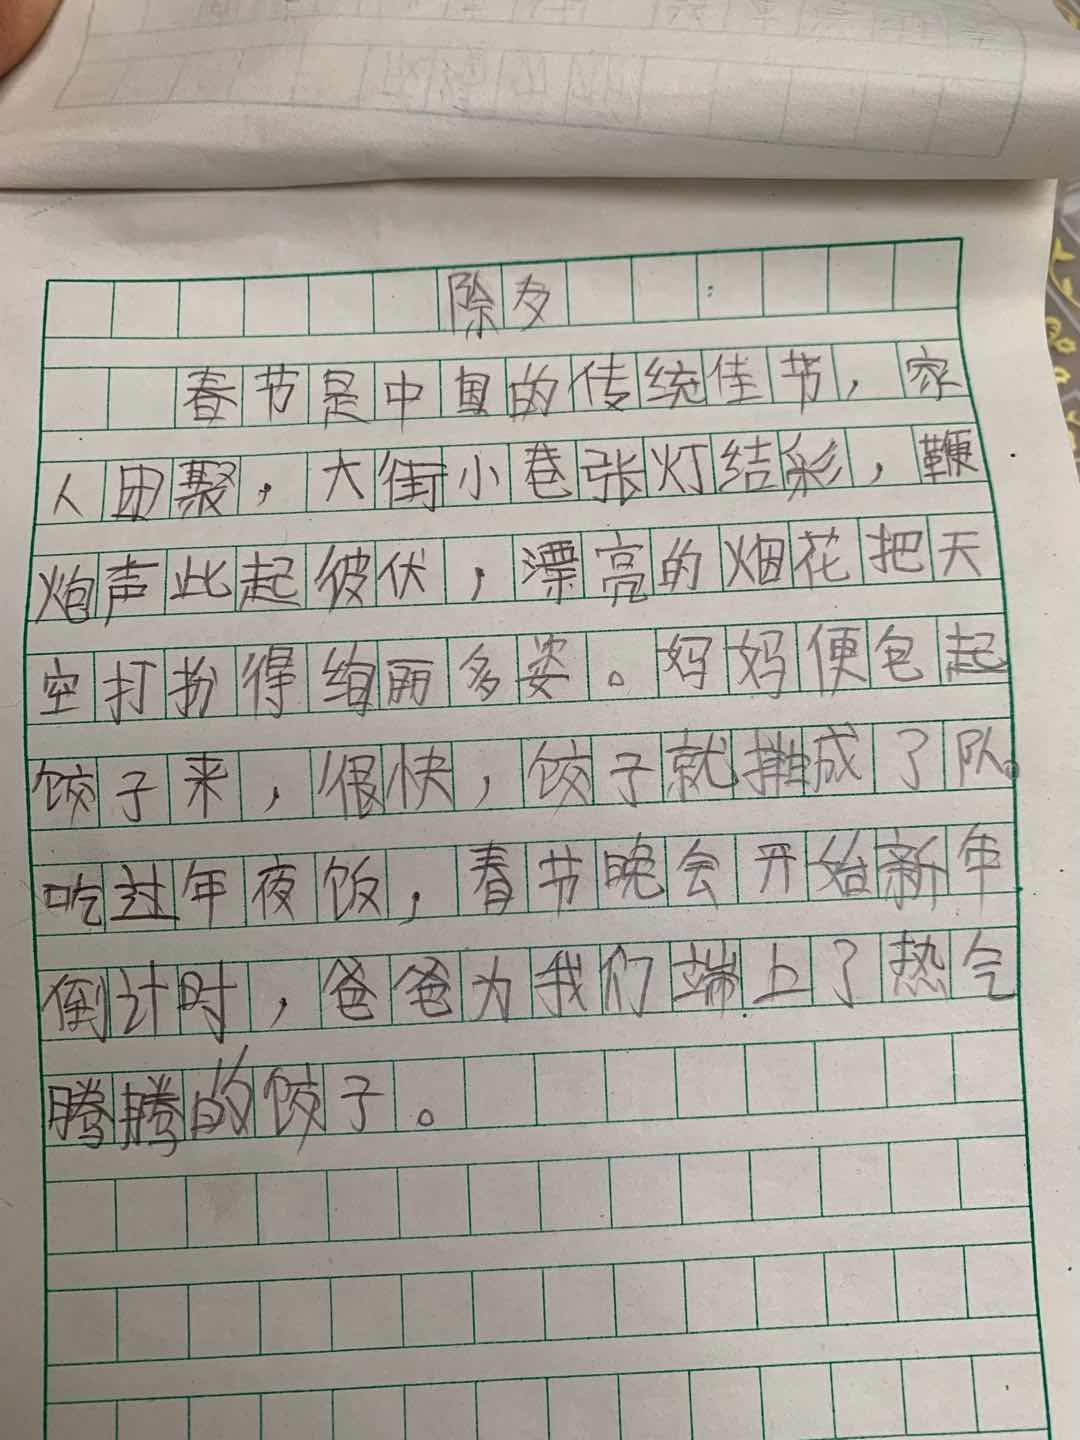 除夕
春节是中国的传统佳节，家
人团聚，大街小巷张灯结彩，鞭
炮声此起彼伏，漂亮的烟花把天
空打扮得绚丽多姿。妈妈便包起
饺子来，很快，饺子就排成了队。
吃过年夜饭，春节晚会开始新年
倒计时，爸爸为我们端上了热气
腾腾的饺子。